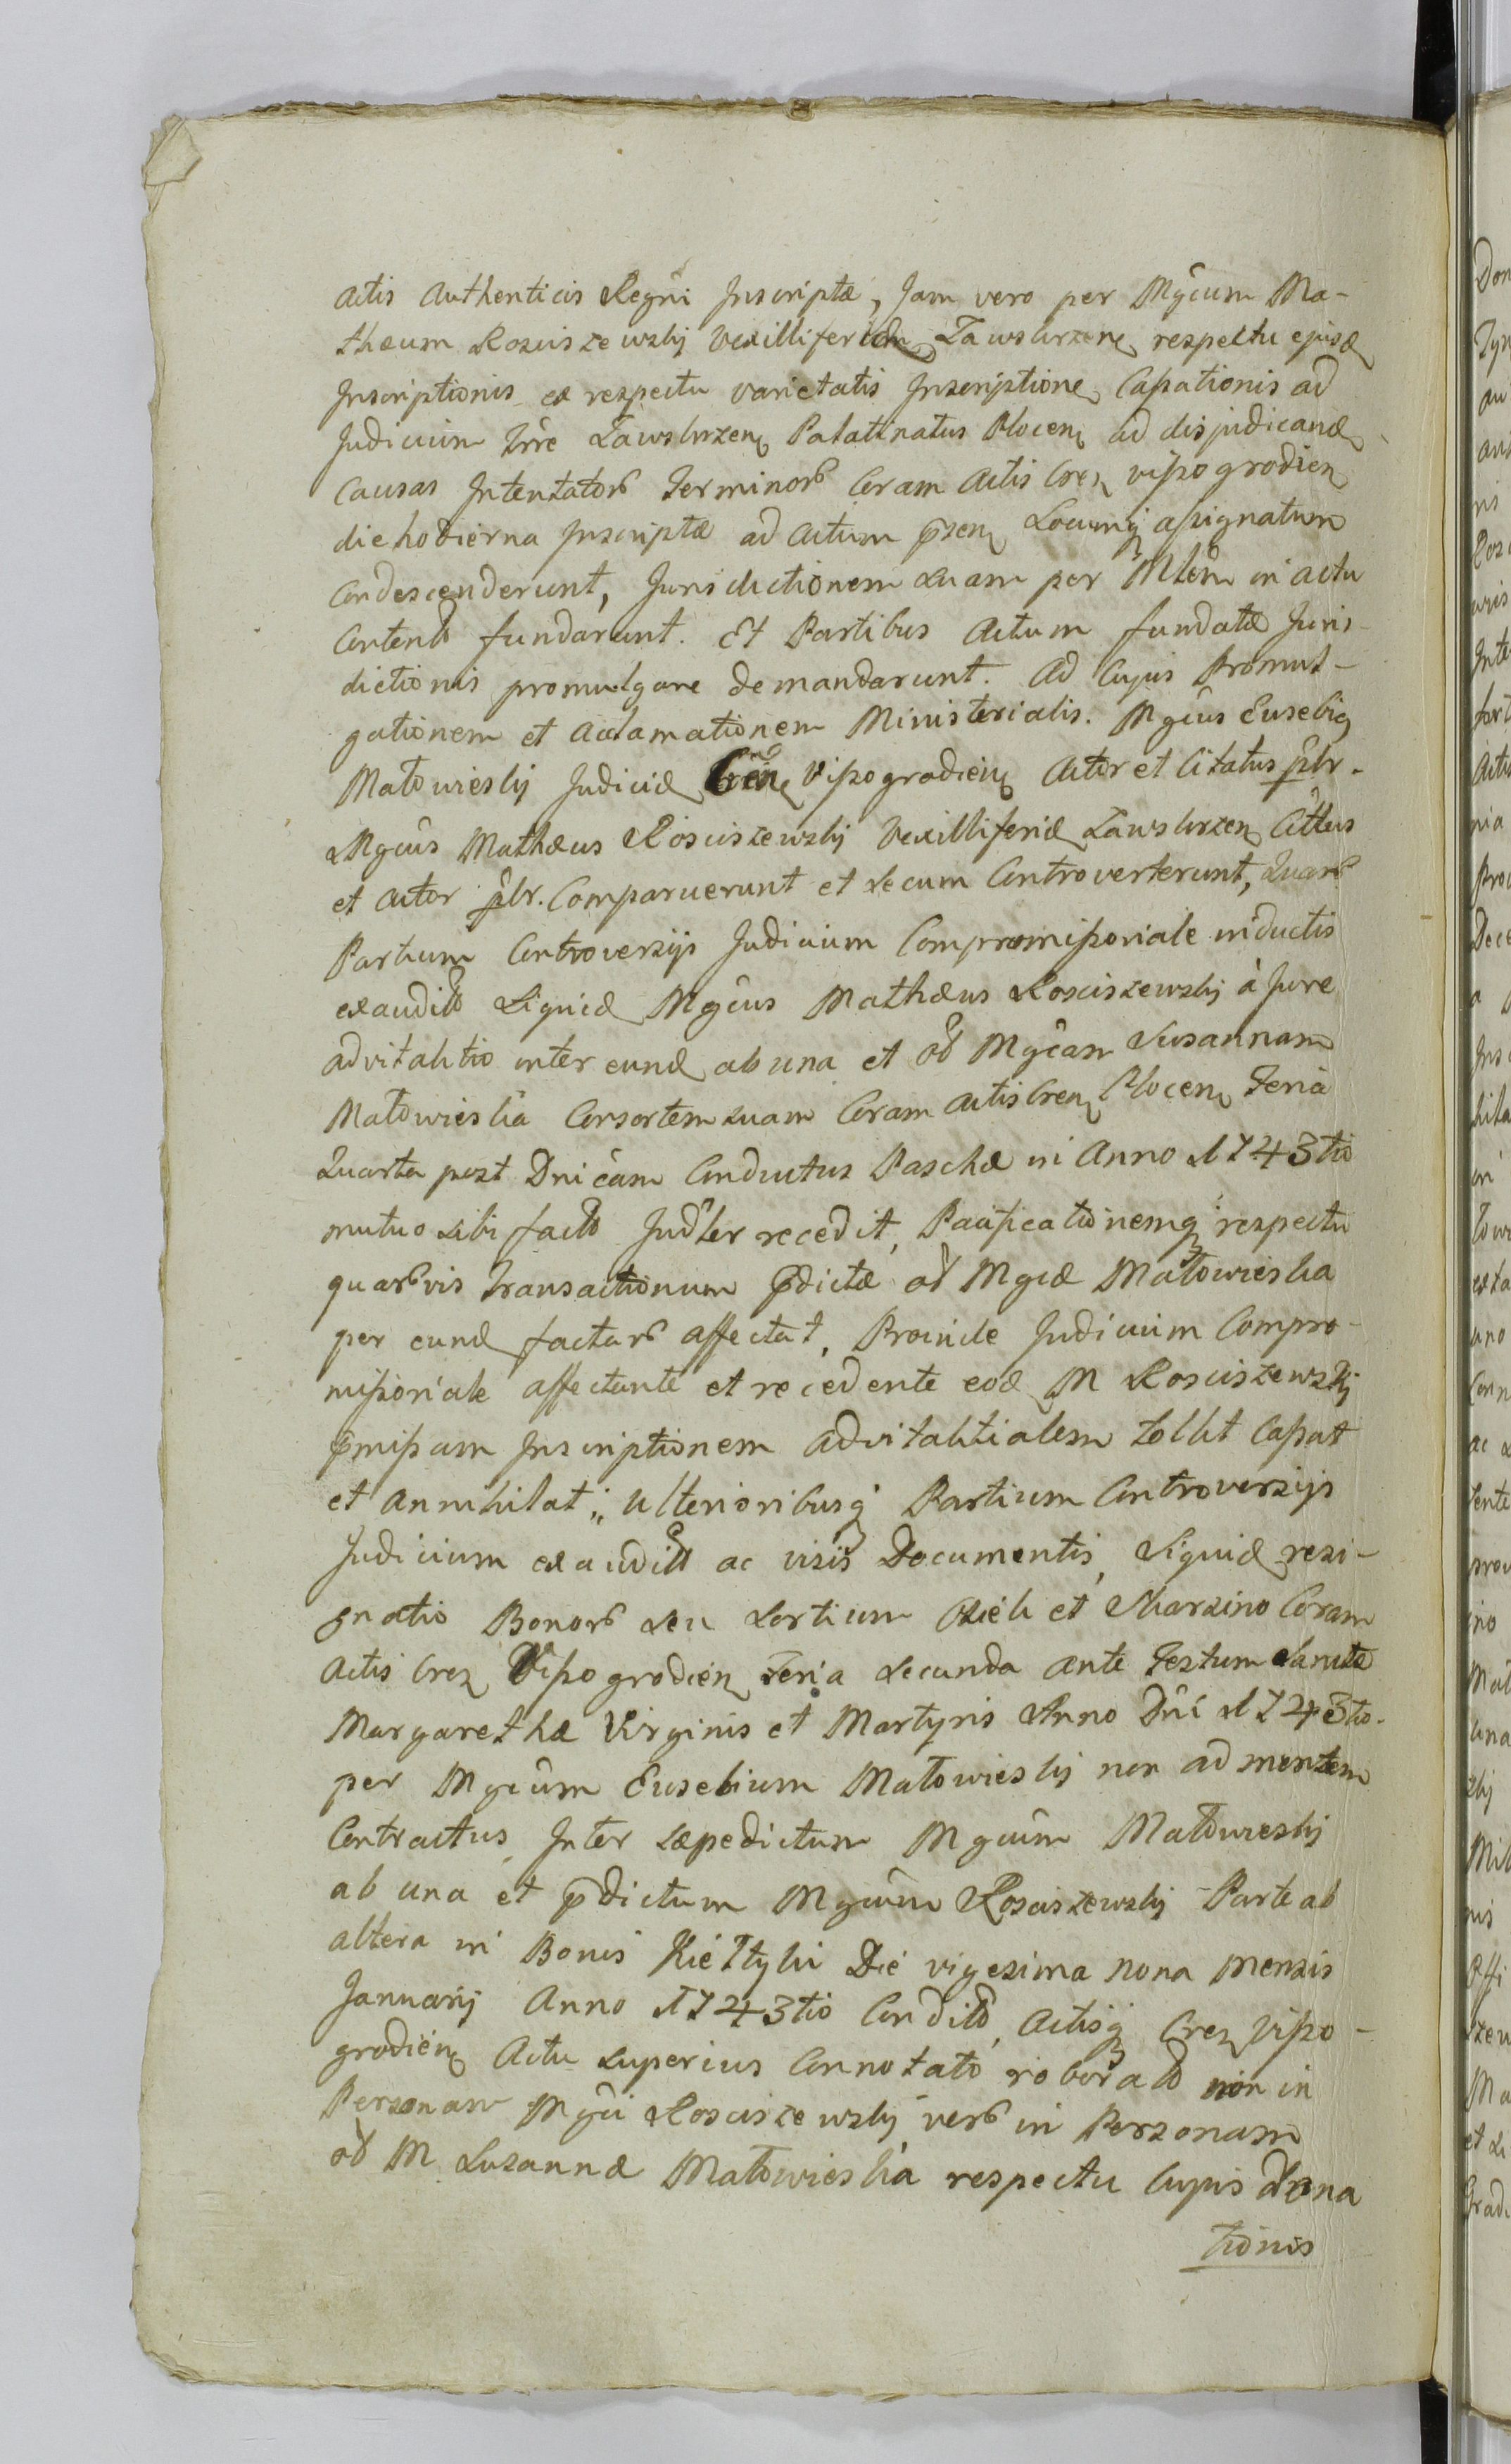 Actis Authenticis Regni Inscriptæ, Jam vero per Mgcum Ma-
theum Rosciszewskij Vexilliferidem Zawskrzen respectu ejusd
Inscriptionis ex respectu varietatis Inscriptione Cassationis ad
Judicium Trre Zawskrzen Palatinatus Plocen ad disjudicand
Causas Intentator Terminor Coram Actis Cren Vissogrodien
die hodierna Inscriptæ ad Actum psen Locumq assignatum
Condescenderunt, Jurisdictionem suam per Mlem in actu
Content fundarunt. Et Partibus Actum fundatæ Juris-
dictionis promulgare demandarunt. Ad Cujus Promul-
gationem et Acclamationem Ministerialis. Mgcus Eusebig
Małowieskij Judicid Cren Vissogrodien Actor et Citatus plr.
Mgcus Mathæus Rosciszewskij Vexilliferid Zawskrzen Cittus
et Actor plr. Comparuerunt et secum Controverterunt, Quar
Partium Controversijs Judicium Compromissoriale inductis
exaudit Siquid Mgcus Mathæus Rosciszewskij à Jure
advitalitio inter eund ab una et ol Mgcam Susannam
Małowieska Consortem suam Coram Actis Cren Plocen Feria
Quarta post Dnicam Conductus Paschæ in Anno 1743tio
mutuo sibi facto Judler recedit, Pacificationemq respectu
quarvis Transactionum pdictæ ol Mgcæ Małowieska
per eund factar affectat, Proinde Judicium Compro-
missoriale affectante et recedente eod M Rosciszewskij
pmissam Inscriptionem advitalitialem tollit Cassat
et annihilat; ulterioribusq Partium Controversijs
Judicium exaudit ac visis Documentis, Siquid resi-
gnatio Bonor seu Sortium Osiek et Skarzino Coram
Actis Cren Vissogrodien Feria Secunda ante Festum Sanctæ
Margarethæ Virginis et Martyris Anno Dni 1743tio.
per Mgcum Eusebium Małowieskij non ad mentem
Contractus Inter sæpedictum Mgcum Małowieskij
ab una et pdictum Mgcum Rosciszewskij Parte ab
altera in Bonis Kiełtyki Die vigesima nona Mensis
Januarij Anno 1743tio Condito, Actisq Cren Visso-
grodien Actu superius Connotato roborato non in
Personam Mgci Rosciszewskij ver in Personam
ol M Susannæ Małowieska respectu Cujus Dona
tionis